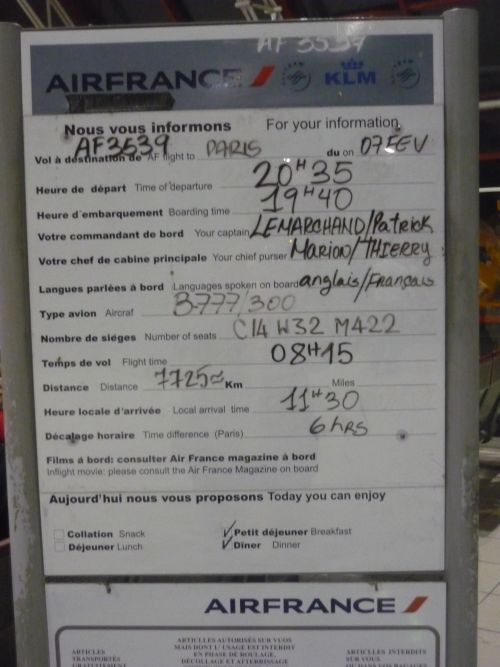 AF 3539
AIRFRANCE KLM
Nous vous informons For your information
AF3539
Vol à destination de AF flight to PARIS du on 07 FEV
Heure de départ Time of departure 20H35
Heure d'embarquement Boarding time 19H40
Votre commandant de bord Your captain LEMARCHAND/Patrick
Votre chef de cabine principale Your chief purser Marion/THIERRY
Langues parlées à bord Languages spoken on board anglais/Français
Type avion Aircraf B-777/300
Nombre de siéges Number of seats C14 W32 M422
Temps de vol Flight time 08H15
Distance Distance 7725≈ Km Miles
Heure locale d'arrivée Local arrival time 11H30
Décalage horaire Time difference (Paris) 6 hRS
Films á bord: consulter Air France magazine à bord
Inflight movie: please consult the Air France Magazine on board
Aujourd'hui nous vous proposons Today you can enjoy
Collation Snack ✓ Petit déjeuner Breakfast
Déjeuner Lunch ✓ Dîner Dinner
AIRFRANCE
ARTICLES TRANSPORTÉS GRATUITEMENT
ARTICLES AUTORISÉS SUR VOUS
MAIS DONT L' USAGE EST INTERDIT
EN PHASE DE ROULAGE,
DÉCOLLAGE ET ATTERRISSAGE
ARTICLES INTERDITS
SUR VOUS
OU DANS VOS BAGAGES